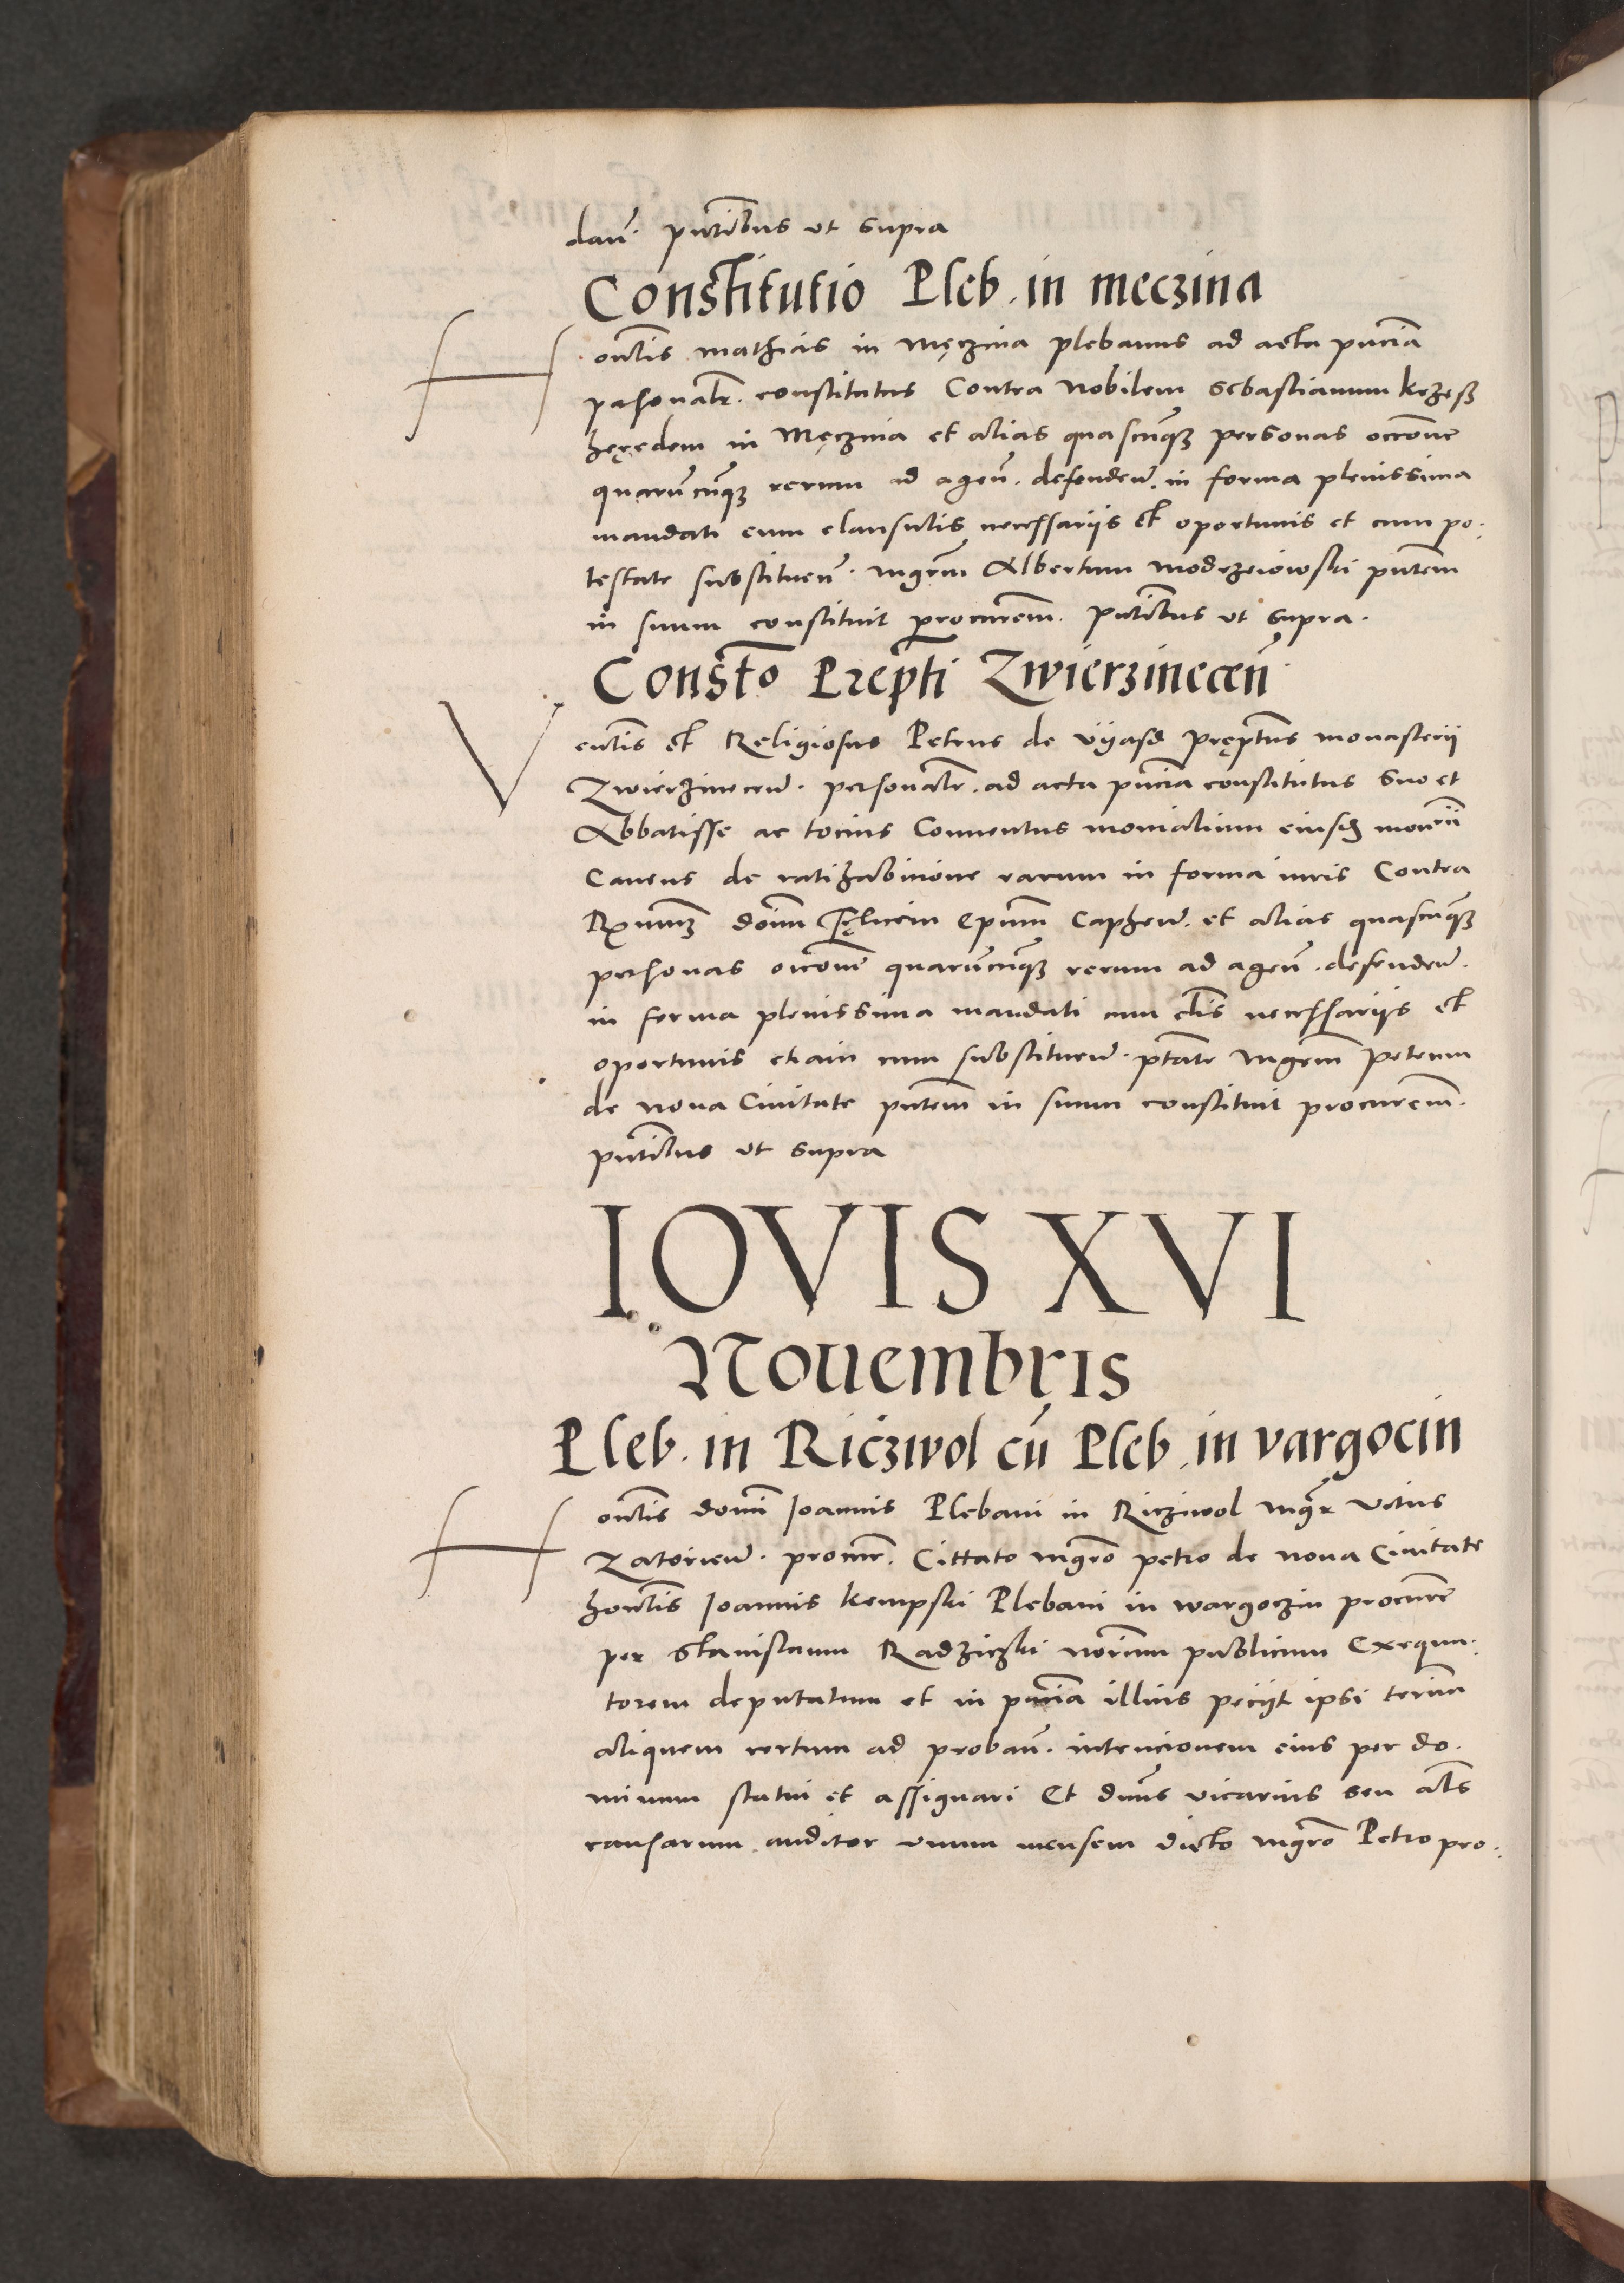 dan̄. pn̄tibus ut supra
Constitutio Pleb. in meczina
Hon̄lis mathias in Męczina plebanus ad acta pn̄cia
personalr̄. constitutus Contra Nobilem Sebastianum krzesz
hęredem in Męczina et alias quascūqȝ personas occōne
quarūcūqȝ rerum ad agen̄. defenden̄. in forma plenissima
mandati cum clausulis necessariis et oportunis et cum po.
testate substituen̄. mgr̄m Albertum modrzeiowski pn̄tem
in suum constituit procurem̄. Pn̄tibus ut supra.
Constō Prepti Zwierzinecen̄
Ven̄lis et Religiosus Petrus de Uyasd Pręptus monasterii
Zwierzinecen̄. personalr̄. ad acta pn̄cia constitutus suo et
Abbatisse ac tocius Conuentus monialium eiusd̄ mon̄rii
Cauens de ratihabicione earum in forma iuris Contra
Rx̄mumȝ dōim Fęlicem Epum̄ Caphen̄. et alias quascūqȝ
personas occōne quarūcūqȝ rerum ad agen̄. defenden̄.
in forma plenissima mandati cum cl̄is necessariis et
oportunis etiam cum substituen̄. ptāte mgrem̄ Petrum
de noua Ciuitate pn̄tem in suum constituit procurem̄.
pn̄tibus ut supra
IOVIS XVI
Nouembris
Pleb. in Riczwol cū Pleb. in vargocin
Hon̄lis domī Joannis Plebani in Riczwol mgr̄ Vitus
Zatorien̄. procur̄. Cittato mgrō petro de noua Ciuitate
hon̄lis Joannis kempski Plebani in wargoczin procurē
per Stanislaum Radziczki norium̄ publicum Exequu.
torem deputatum et in pn̄cia illius peciit ipsi terium̄
aliquem certum ad proban̄. intencionem eius per do.
minum statui et assignari Et dnūs vicarius seu al̄s
causarum auditor vnum mensem dicto mgrō Petro pro.